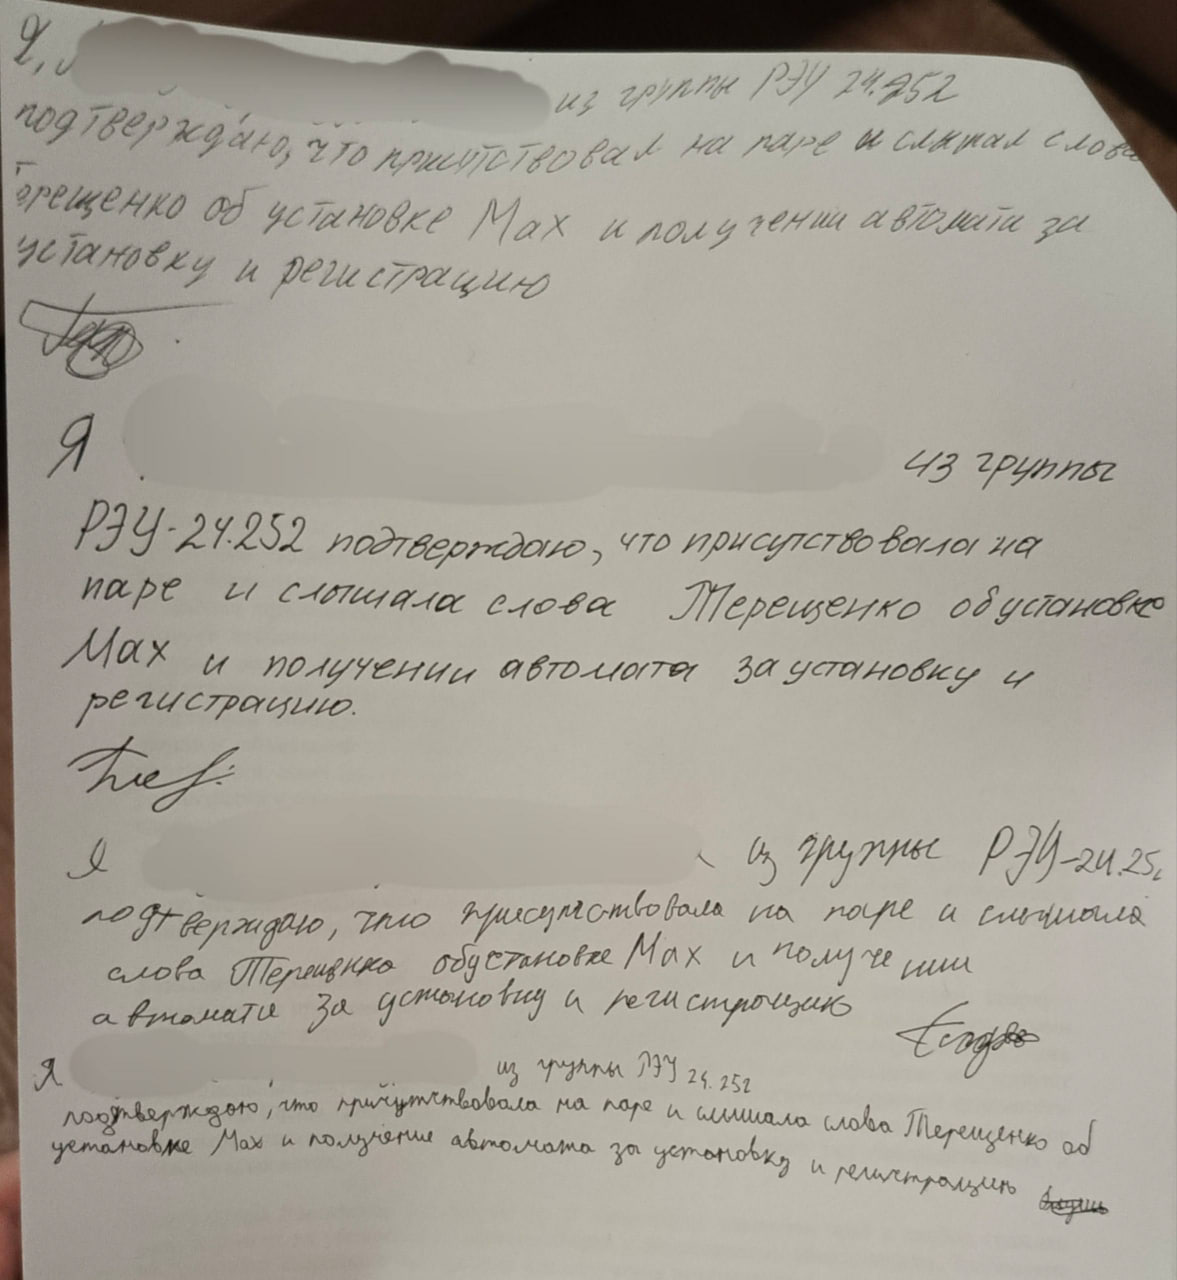 Я,
из группы РЭУ 24.252
подтверждаю, что присутствовал на паре и слышал слова
Терещенко об установке Max и получении автомата за
установку и регистрацию
Я из группы
РЭУ-24.252 подтверждаю, что присутствовала на
паре и слышала слова Терещенко об установке
Max и получении автомата за установку и
регистрацию.
Я из группы РЭУ-24.25
подтверждаю, что присутствовала на паре и слышала
слова Терещенко об установке Max и получении
автомата за установку и регистрацию
Я из группы РЭУ 24.252
подтверждаю, что присутствовала на паре и слышала слова Терещенко об
установке Max и получение автомата за установку и регистрацию